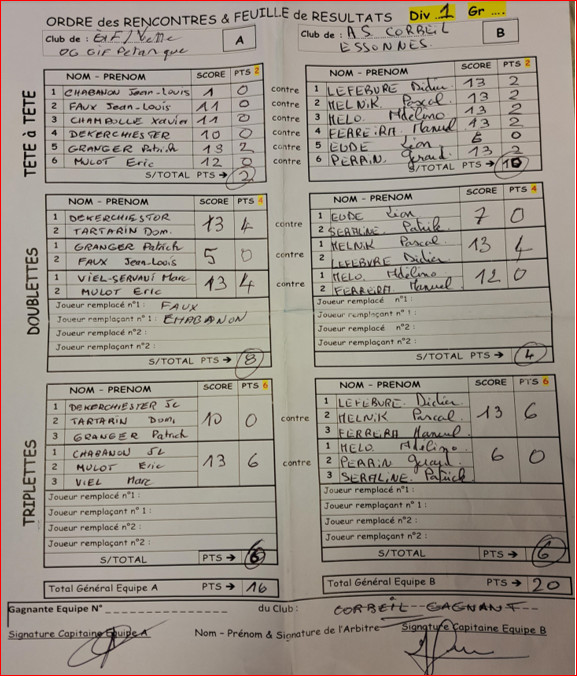 ORDRE des RENCONTRES & FEUILLE de RESULTATS Div 1 Gr ....
Club de : GIF/Yvette A Club de : A.S. CORBEIL B
OC Gif Petanque ESSONNES
TETE à TETE
NOM - PRENOM SCORE PTS 2 NOM - PRENOM SCORE PTS 2
1 CHABANON Jean-Louis 1 0 contre 1 LEFEBURE Didier 13 2
2 FAUX Jean-Louis 11 0 contre 2 MELNIK Pascal 13 2
3 CHAMPOLLE Xavier 11 0 contre 3 MELO Adélino 13 2
4 DEKERCHIESTER 10 0 contre 4 FERREIRA Manuel 13 2
5 GRANGER Patrick 13 2 contre 5 EUDE Léon 6 0
6 MULOT Eric 12 0 contre 6 PERRIN Gérard 13 2
S/TOTAL PTS → 2 S/TOTAL PTS → 10
DOUBLETTES
NOM - PRENOM SCORE PTS 4 NOM - PRENOM SCORE PTS 4
1 DEKERCHIESTER 13 4 contre 1 EUDE Léon 7 0
2 TARTARIN Dom. 2 SERALINE Patrick
1 GRANGER Patrick 5 0 contre 1 MELNIK Pascal 13 4
2 FAUX Jean-Louis 2 LEFEBVRE Didier
1 VIEL-SERVANT Marc 13 4 contre 1 MELO Adélino 12 0
2 MULOT Eric 2 FERREIRA Manuel
Joueur remplacé n°1 : FAUX Joueur remplacé n°1 :
Joueur remplaçant n°1 : CHABANON Joueur remplaçant n°1 :
Joueur remplacé n°2 : Joueur remplacé n°2 :
Joueur remplaçant n°2 : Joueur remplaçant n°2 :
S/TOTAL PTS → 8 S/TOTAL PTS → 4
TRIPLETTES
NOM - PRENOM SCORE PTS 6 NOM - PRENOM SCORE PTS 6
1 DEKERCHIESTER JL 10 0 contre 1 LEFEBURE Didier 13 6
2 TARTARIN Dom, 2 MELNIK Pascal
3 GRANGER Patrick 3 FERREIRA Manuel
1 CHABANON JL 13 6 contre 1 MELO Adélino 6 0
2 MULOT Eric 2 PERRIN Gérard
3 VIEL Marc 3 SERALINE Patrick
Joueur remplacé n°1 : Joueur remplacé n°1 :
Joueur remplaçant n°1 : Joueur remplaçant n°1 :
Joueur remplacé n°2 : Joueur remplacé n°2 :
Joueur remplaçant n°2 : Joueur remplaçant n°2 :
S/TOTAL PTS → 6 S/TOTAL PTS → 6
Total Général Equipe A PTS → 16 Total Général Equipe B PTS → 20
Gagnante Equipe N° du Club : CORBEIL GAGNANT
Signature Capitaine Equipe A Nom - Prénom & Signature de l'Arbitre Signature Capitaine Equipe B